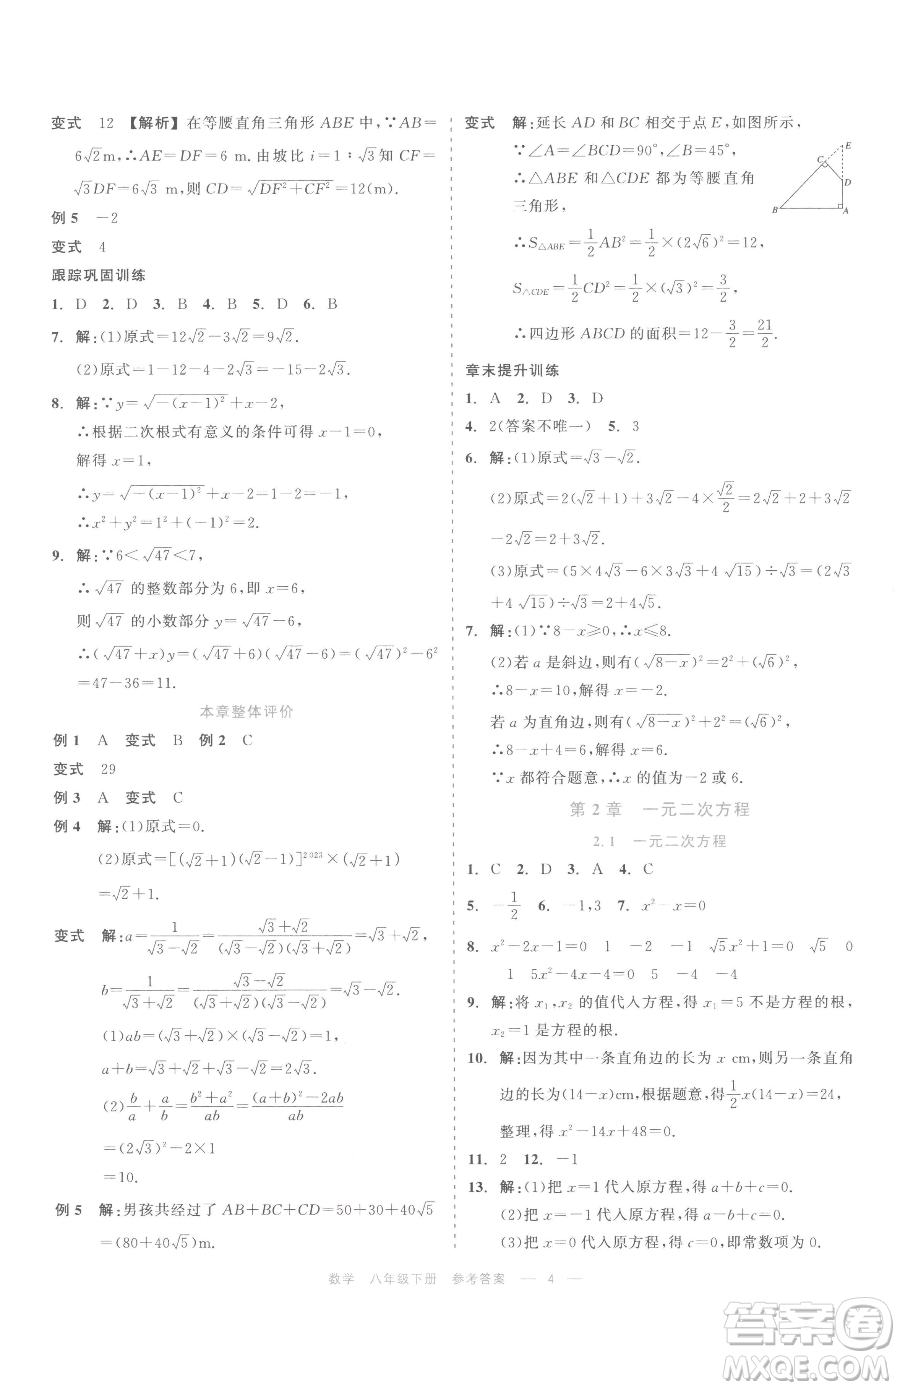 变式 12 【解析】在等腰直角三角形 ABE 中,∵AB=
6√2 m,∴AE=DF=6 m.由坡比 i=1:√3知 CF=
√3DF=6√3 m,则 CD=√(DF²+CF²)=12(m).
例 5 −2
变式 4
跟踪巩固训练
1. D 2. D 3. B 4. B 5. D 6. B
7. 解:(1)原式=12√2−3√2=9√2.
(2)原式=1−12−4−2√3=−15−2√3.
8. 解:∵y=√(−(x−1)²)+x−2,
∴根据二次根式有意义的条件可得 x−1=0,
解得 x=1,
∴y=√(−(x−1)²)+x−2=−1,
∴x²+y²=1²+(−1)²=2.
9. 解:∵6<√47<7,
∴√47 的整数部分为 6,即 x=6,
则√47的小数部分 y=√47−6,
∴(√47+x)y=(√47+6)(√47−6)=(√47)²−6²
=47−36=11.
本章整体评价
例 1 A 变式 B 例 2 C
变式 29
例 3 A 变式 C
例 4 解:(1)原式=0.
(2)原式=[(√2+1)(√2−1)]²⁰²³×(√2+1)
=√2+1.
变式 解:a=1/(√3−√2)=(√3+√2)/((√3−√2)(√3+√2))=√3+√2,
b=1/(√3+√2)=(√3−√2)/((√3+√2)(√3−√2))=√3−√2.
(1)ab=(√3+√2)×(√3−√2)=1,
∴a²b+ab²=ab(a+b)=√3+√2+√3−√2=2√3.
(2)b/a+a/b=(b²+a²)/ab=((a+b)²−2ab)/ab
=(2√3)²−2×1
=10.
例 5 解:男孩共经过了 AB+BC+CD=50+30+40√5
=(80+40√5)m.
变式 解:延长 AD 和 BC 相交于点 E,如图所示,
∵∠A=∠BCD=90°,∠B=45°,
∴△ABE 和△CDE 都为等腰直角
三角形,
E
C
D
B
A
∴S△ABE=1/2AB²=1/2×(2√6)²=12,
S△CDE=1/2CD²=1/2×(√3)²=3/2,
∴四边形 ABCD 的面积=12−3/2=21/2.
章末提升训练
1. A 2. D 3. D
4. 2(答案不唯一) 5. 3
6. 解:(1)原式=√3−√2.
(2)原式=2(√2+1)+3√2−4×√2/2=2√2+2+3√2
−2√2=2+3√2.
(3)原式=(5×4√3−6×3√3+4√15)÷√3=(2√3
+4√15)÷√3=2+4√5.
7. 解:(1)∵8−x≥0,∴x≤8.
(2)若 a 是斜边,则有(√(8−x))²=2²+(√6)²,
∴8−x=10,解得 x=−2.
若 a 为直角边,则有(√(8−x))²+2²=(√6)²,
∴8−x+4=6,解得 x=6.
∵x 都符合题意,∴x 的值为−2 或 6.
第 2 章 一元二次方程
2.1 一元二次方程
1. C 2. D 3. A 4. C
5. −1/2 6. −1,3 7. x²−x=0
8. x²−2x−1=0 1 −2 −1 √5x²+x=0 √5 0
1 5x²−4=0 5 −4 0
9. 解:将 x₁,x₂ 的值代入方程,得 x₁=5 不是方程的根,
x₂=1 是方程的根.
10. 解:因为其中一条直角边的长为 x cm,则另一直角
边的长为(14−x)cm,根据题意,得1/2x(14−x)=24,
整理,得 x²−14x+48=0.
11. 2 12. −1
13. 解:(1)把 x=1 代入原方程,得 a+b+c=0.
(2)把 x=−1 代入原方程,得 a−b+c=0.
(3)把 x=0 代入原方程,得 c=0.
数学 八年级下册 参考答案 — 4 —
答案圈
MXQE.COM